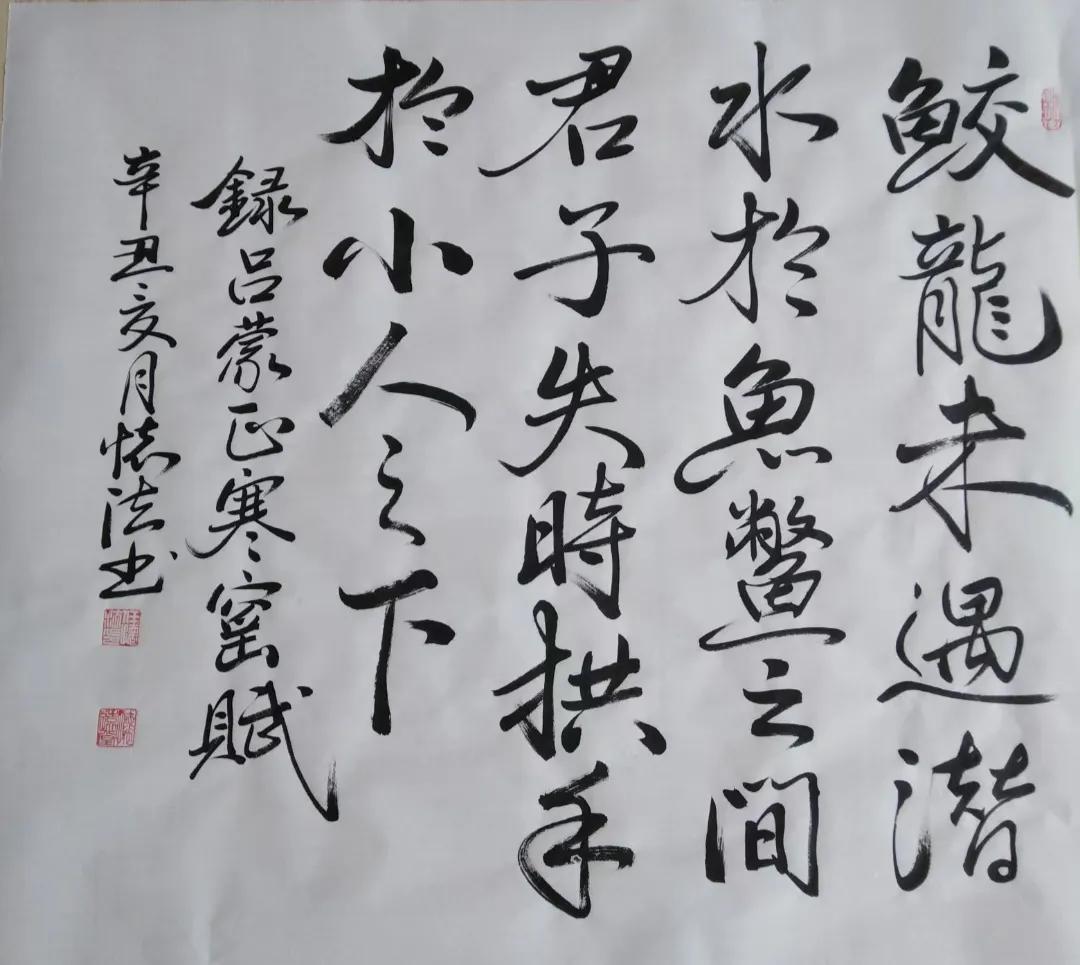 鲛龍未遇潜
水於魚鱉之間
君子失時拱手
於小人之下
録吕蒙正寒窑賦
辛丑亥月懷法书